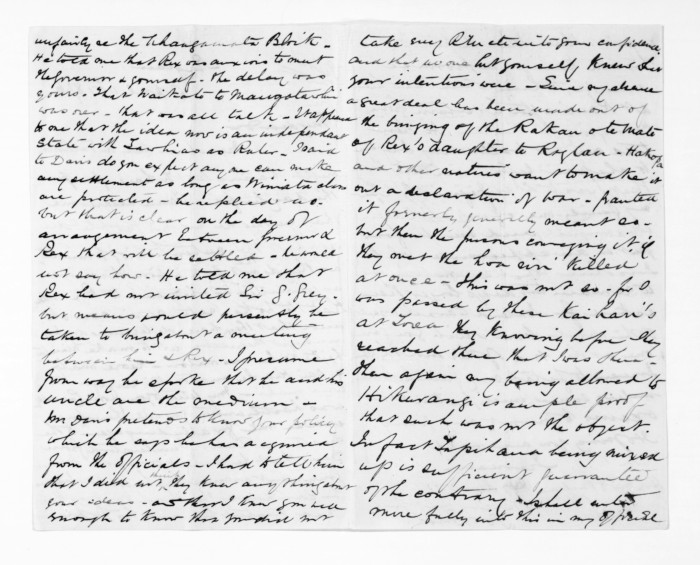 unfairly re the Whangamata Block -
He told me that Rex was anxious to meet
the Governor & yourself - the delay was
yours - that Waikato to Maungatautari
was over - that was all talk - It appears
to me that the idea now is an independent
State with Tawhiao as Ruler - I said
to Davis do you expect anyone can make
any settlement as long as Winiata & Co
are protected - he replied no -
but that is clear on the day of
arrangement between Gov. and
Rex that will be settled - he would
not say how - He told me that
Rex had not invited Sir G. Grey -
but means would presently be
taken to bring about a meeting
between him & Rex - I presume
from way he spoke that he and his
uncle are the medium -
Mr Davis pretends to know your policy
which he says he has acquired
from the officials - I had to tell him
that I did not think they knew anything about
your ideas - as that I knew you well
enough to know that you did not
take every Dick etc into your confidence
and that no one but yourself knew what
your intentions were - Since my absence
a great deal has been made out of
the bringing of the Rakau o te mate
of Rex's daughter to Raglan -
and other natives want to make it
out a declaration of war - granted
it formerly generally meant so -
but then the persons conveying it if
they met the hoa riri killed
at once - This was not so - for I
was passed by these Kaihari's
at Torea they knowing before they
reached there that I was there -
then again my being allowed to
Hikurangi is ample proof
that such was not the object.
In fact Tapihana being mixed
up is sufficient guarantee
of the contrary - I shall enter
more fully into this in my official